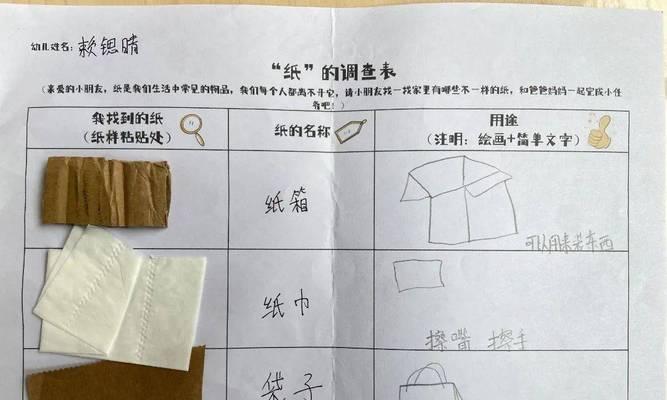 幼儿姓名：赖锶晴
“纸”的调查表
（亲爱的小朋友，纸是我们生活中常见的物品，我们每个人都离不开它，请小朋友找一找家里有哪些不一样的纸，和爸爸妈妈一起完成小任
务吧！）
我找到的纸
（纸样粘贴处）
纸的名称
用途
（注明：绘画+简单文字）
纸箱
可以用来装东西
纸巾
擦嘴 擦手
袋子